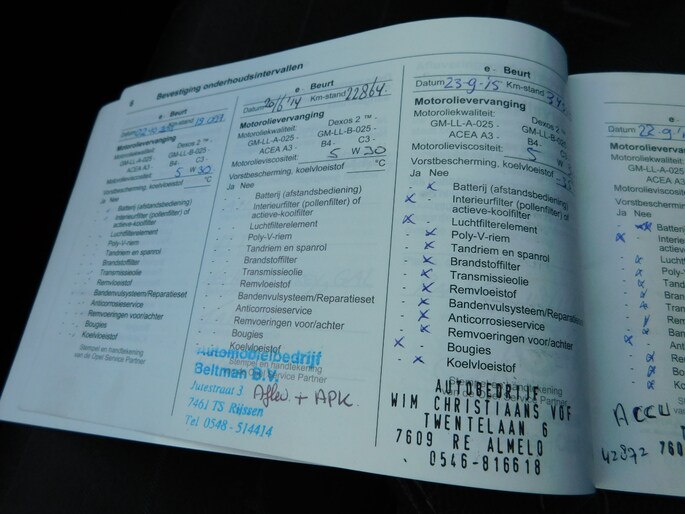 8 Bevestiging onderhoudsintervallen
e - Beurt
Datum Km-stand
Motorolievervanging
Motoroliekwaliteit: Dexos 2 ™ -
GM-LL-A-025 - GM-LL-B-025 -
ACEA A3 - B4 - C3 -
Motorolieviscositeit: 5 W 30
Vorstbescherming, koelvloeistof °C
Ja Nee
- - Batterij (afstandsbediening)
- - Interieurfilter (pollenfilter) of
actieve-koolfilter
- - Luchtfilterelement
- - Poly-V-riem
- - Tandriem en spanrol
- - Brandstoffilter
- - Transmissieolie
- - Remvloeistof
- - Bandenvulsysteem/Reparatieset
- - Anticorrosieservice
- - Remvoeringen voor/achter
- - Bougies
- - Koelvloeistof
Stempel en handtekening
van de Opel Service Partner
e - Beurt
Datum 20/6'14 Km-stand 22864
Motorolievervanging
Motoroliekwaliteit: Dexos 2 ™ -
GM-LL-A-025 - GM-LL-B-025 -
ACEA A3 - B4 - C3 -
Motorolieviscositeit: 5 W 30
Vorstbescherming, koelvloeistof °C
Ja Nee
- - Batterij (afstandsbediening)
- - Interieurfilter (pollenfilter) of
actieve-koolfilter
- - Luchtfilterelement
- - Poly-V-riem
- - Tandriem en spanrol
- - Brandstoffilter
- - Transmissieolie
- - Remvloeistof
- - Bandenvulsysteem/Reparatieset
- - Anticorrosieservice
- - Remvoeringen voor/achter
- - Bougies
- - Koelvloeistof
Stempel en handtekening
Service Partner
Automobielbedrijf
Beltman B.V.
Jutestraat 3
7461 TS Rijssen
Tel 0548 - 514414
Aflev. + APK.
e - Beurt
Datum 23-9-'15 Km-stand
Motorolievervanging
Motoroliekwaliteit: Dexos 2 ™ -
GM-LL-A-025 - GM-LL-B-025 -
ACEA A3 - B4 - C3 -
Motorolieviscositeit: 5 W 30
Vorstbescherming, koelvloeistof
Ja Nee
- x Batterij (afstandsbediening)
x - Interieurfilter (pollenfilter) of
actieve-koolfilter
x - Luchtfilterelement
- x Poly-V-riem
- x Tandriem en spanrol
- x Brandstoffilter
- x Transmissieolie
- x Remvloeistof
- x Bandenvulsysteem/Reparatieset
- x Anticorrosieservice
- x Remvoeringen voor/achter
x - Bougies
- x Koelvloeistof
AUTOBEDRIJF
WIM CHRISTIAANS VOF
TWENTELAAN 6
7609 RE ALMELO
0546-816618
e -
Datum 22-9-
Motorolievervang
Motoroliekwaliteit:
GM-LL-A-025
ACEA A3
Motorolieviscos
Vorstbescherm
Ja Nee
ACCU
42872 760